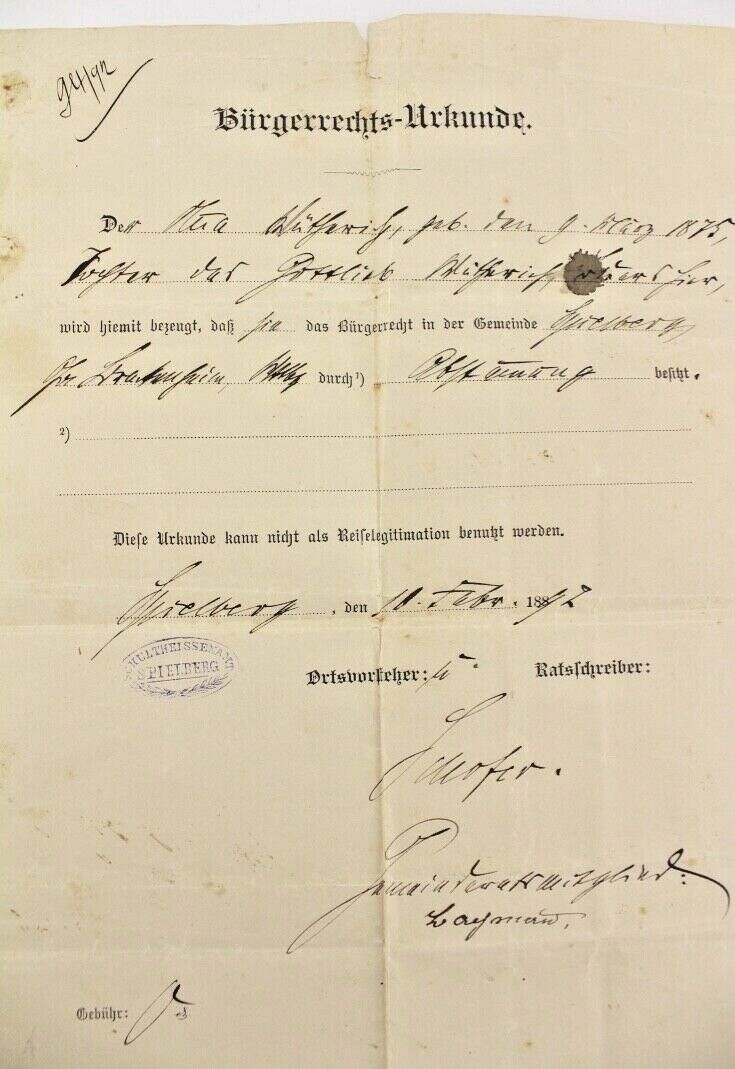 Bürgerrechts-Urkunde.
Der Wütherich, geb. den 9. März 1875,
Tochter des Gottlieb Wütherich, hier,
wird hiemit bezeugt, daß sie das Bürgerrecht in der Gemeinde Spielberg,
Brackenheim, durch ¹) Abstammung besitzt.
²)
Diese Urkunde kann nicht als Reiselegitimation benutzt werden.
Spielberg, den 10. Febr. 1892
SCHULTHEISSENAMT
SPIELBERG
Ortsvorsteher: Ratsschreiber:
Gemeinderatsmitglied:
Gebühr: